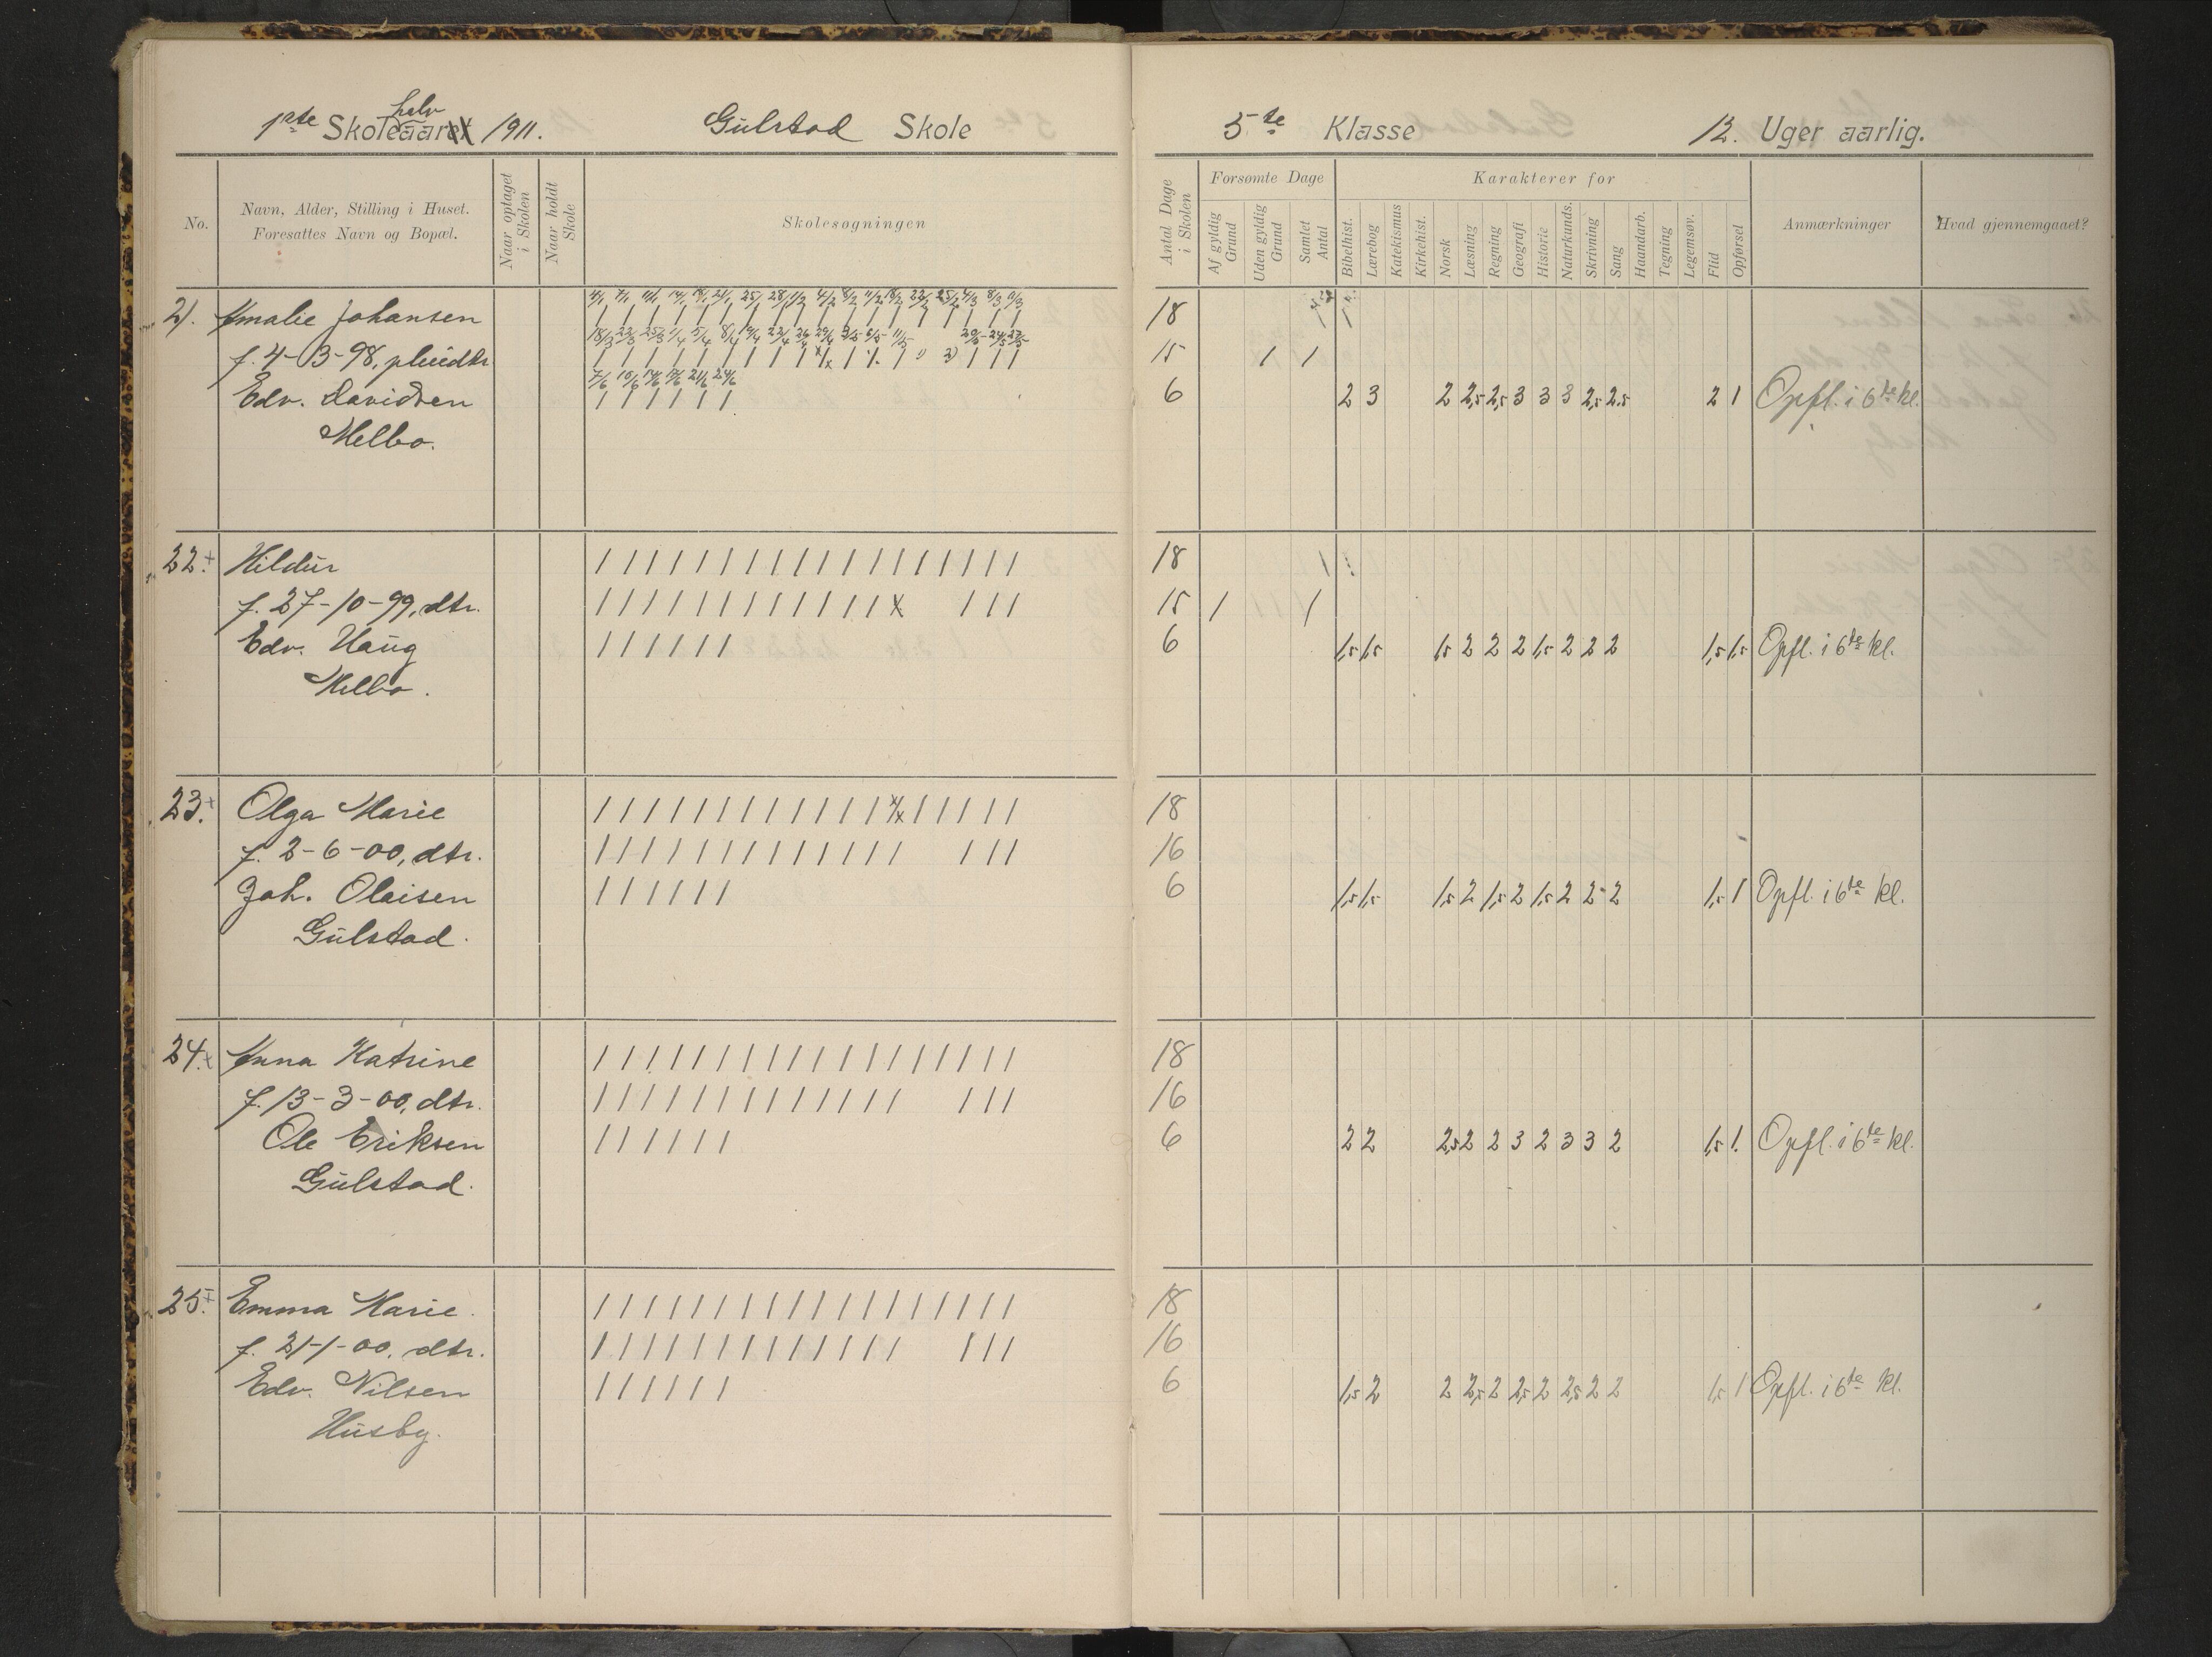 1ste Skolehalvaaret 1911. Gulstad Skole
5te Klasse 12. Uger aarlig.
No.
Navn, Alder, Stilling i Huset.
Foresattes Navn og Bopæl.
Naar optaget i Skolen
Naar holdt Skole
Skolesøgningen
Antal Dage i Skolen
Forsømte Dage
Af gyldig Grund
Uden gyldig Grund
Samlet Antal
Karakterer for
Bibelhist.
Lærebog
Katekismus
Kirkehist.
Norsk
Læsning
Regning
Geografi
Historie
Naturkunds.
Skrivning
Sang
Haandarb.
Tegning
Legemsøv.
Flid
Opførsel
Anmærkninger
Hvad gjennemgaaet?
4/1 7/1 11/1 14/1 18/1 21/1 25/1 28/1 1/2 4/2 8/2 11/2 18/2 22/2 25/2 4/3 8/3 11/3
21. Amalie Johansen / / / / / / / / / / / / / / / / / / 18
f. 4-3-98, pleiedtr. 15 / /
7/6 10/6 14/6 17/6 21/6 24/6
Edv. Davidsen / / / / / / 6 2 3 2 2,5 2,5 3 3 3 2,5 2,5 2 1 Opfl. i 6te kl.
Melbo.
22. Hildur / / / / / / / / / / / / / / / / / / 18
f. 27-10-99, dtr. / / / / / / / / / / / / x / / / 15 / /
Edv. Haug / / / / / / 6 1,5 1,5 1,5 2 2 2 1,5 2 2 2 1,5 1,5 Opfl. i 6te kl.
Melbo.
23. Olga Marie 18
f. 2-6-00, dtr. / / / / / / / / / / / / / / / / 16
Joh. Olaisen / / / / / / 6 1,5 1,5 1,5 2 1,5 2 1,5 2 2 2 1,5 1 Opfl. i 6te kl.
Gulstad.
24. Anna Katrine / / / / / / / / / / / / / / / / / / 18
f. 13-3-00, dtr. / / / / / / / / / / / / / / / / 16
Ole Eriksen / / / / / / 6 2 2 2,5 2 2 3 2 3 3 2 1,5 1. Opfl. i 6te kl.
Gulstad.
25. Emma Marie. / / / / / / / / / / / / / / / / / / 18
f. 21-1-00. dtr. / / / / / / / / / / / / / / / / 16
Edv. Nilsen / / / / / / 6 1,5 2 2 2,5 2 2,5 2 2,5 2 2 1,5 1 Opfl. i 6te kl.
Husby.